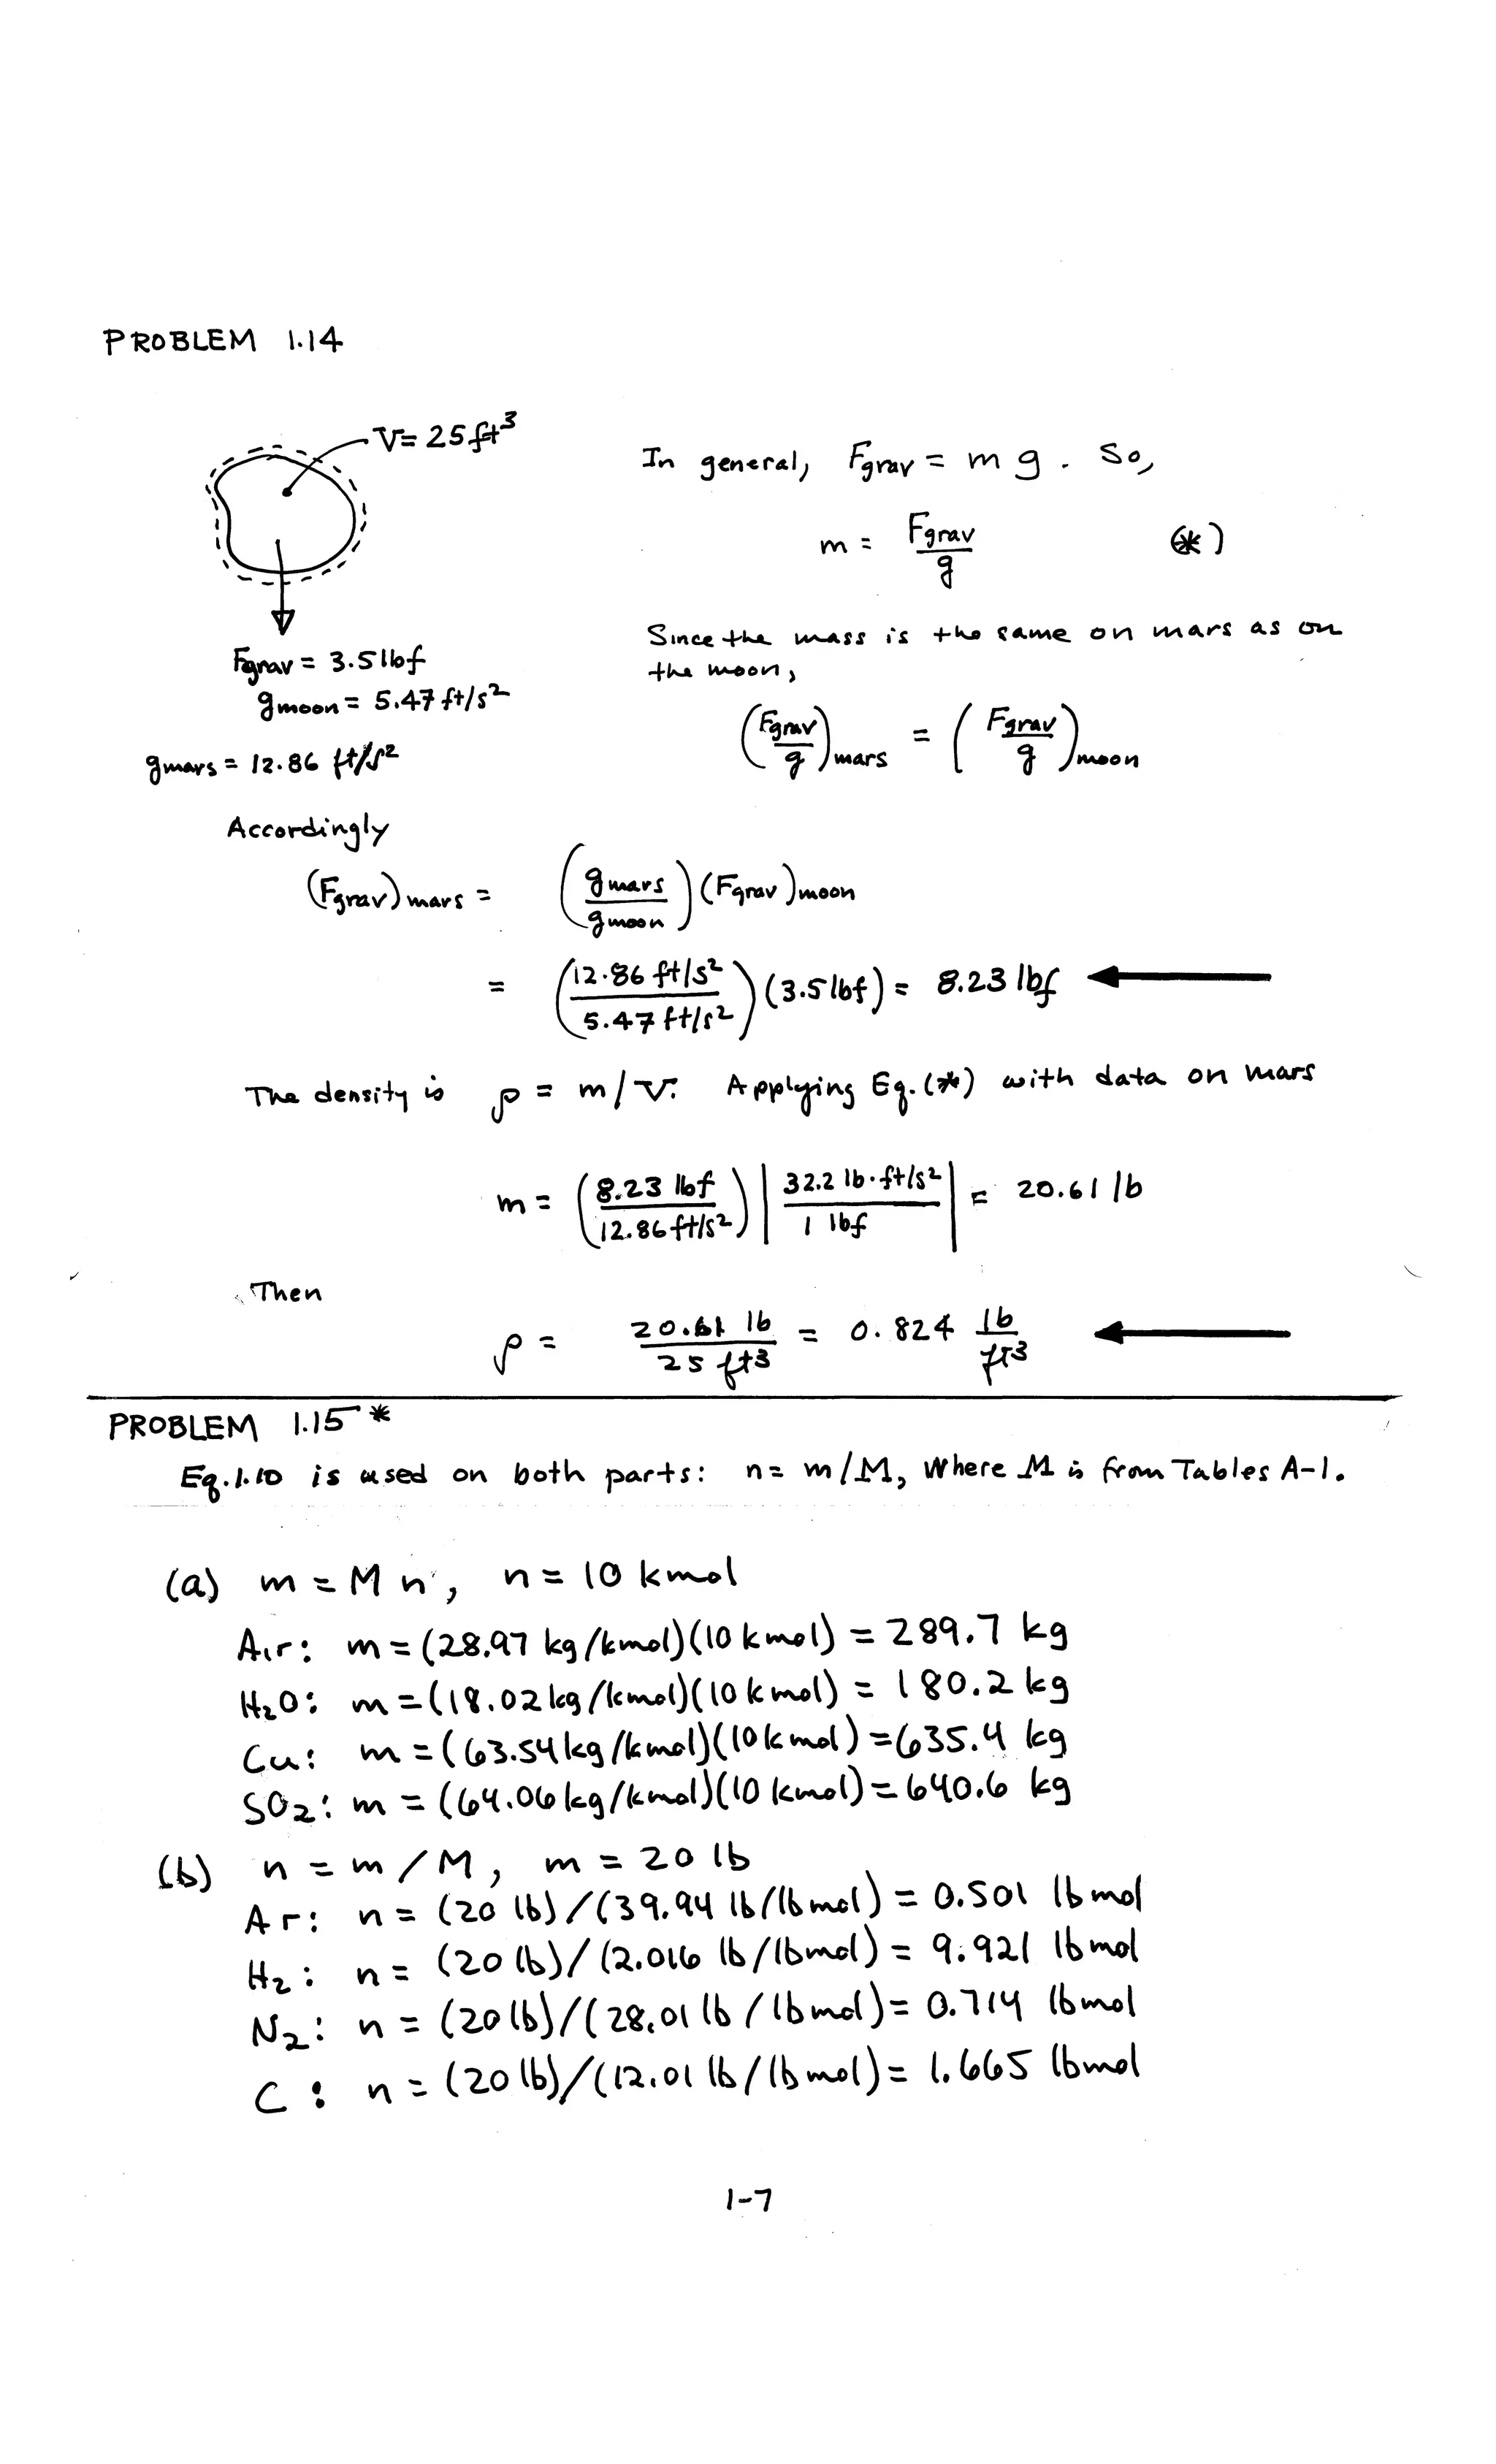 PROBLEM 1.14
V = 25 ft³
In general, Fgrav = m g. So,
m = Fgrav / g (*)
Fgrav = 3.5 lbf
gmoon = 5.47 ft/s²
gmars = 12.86 ft/s²
Since the mass is the same on mars as on
the moon,
(Fgrav / g)mars = (Fgrav / g)moon
Accordingly
(Fgrav)mars = (gmars / gmoon) (Fgrav)moon
= (12.86 ft/s² / 5.47 ft/s²) (3.5 lbf) = 8.23 lbf
The density is ρ = m/V. Applying Eq. (*) with data on mars
m = (8.23 lbf / 12.86 ft/s²) | 32.2 lb·ft/s² / 1 lbf | = 20.61 lb
Then
ρ = 20.61 lb / 25 ft³ = 0.824 lb / ft³
PROBLEM 1.15*
Eq. 1.10 is used on both parts: n = m/M, where M is from Tables A-1.
(a) m = M n, n = 10 kmol
Air: m = (28.97 kg/kmol)(10 kmol) = 289.7 kg
H₂O: m = (18.02 kg/kmol)(10 kmol) = 180.2 kg
Cu: m = (63.54 kg/kmol)(10 kmol) = 635.4 kg
SO₂: m = (64.06 kg/kmol)(10 kmol) = 640.6 kg
(b) n = m/M, m = 20 lb
Ar: n = (20 lb)/(39.94 lb/lbmol) = 0.501 lbmol
H₂: n = (20 lb)/(2.016 lb/lbmol) = 9.921 lbmol
N₂: n = (20 lb)/(28.01 lb/lbmol) = 0.714 lbmol
C: n = (20 lb)/(12.01 lb/lbmol) = 1.665 lbmol
1-7